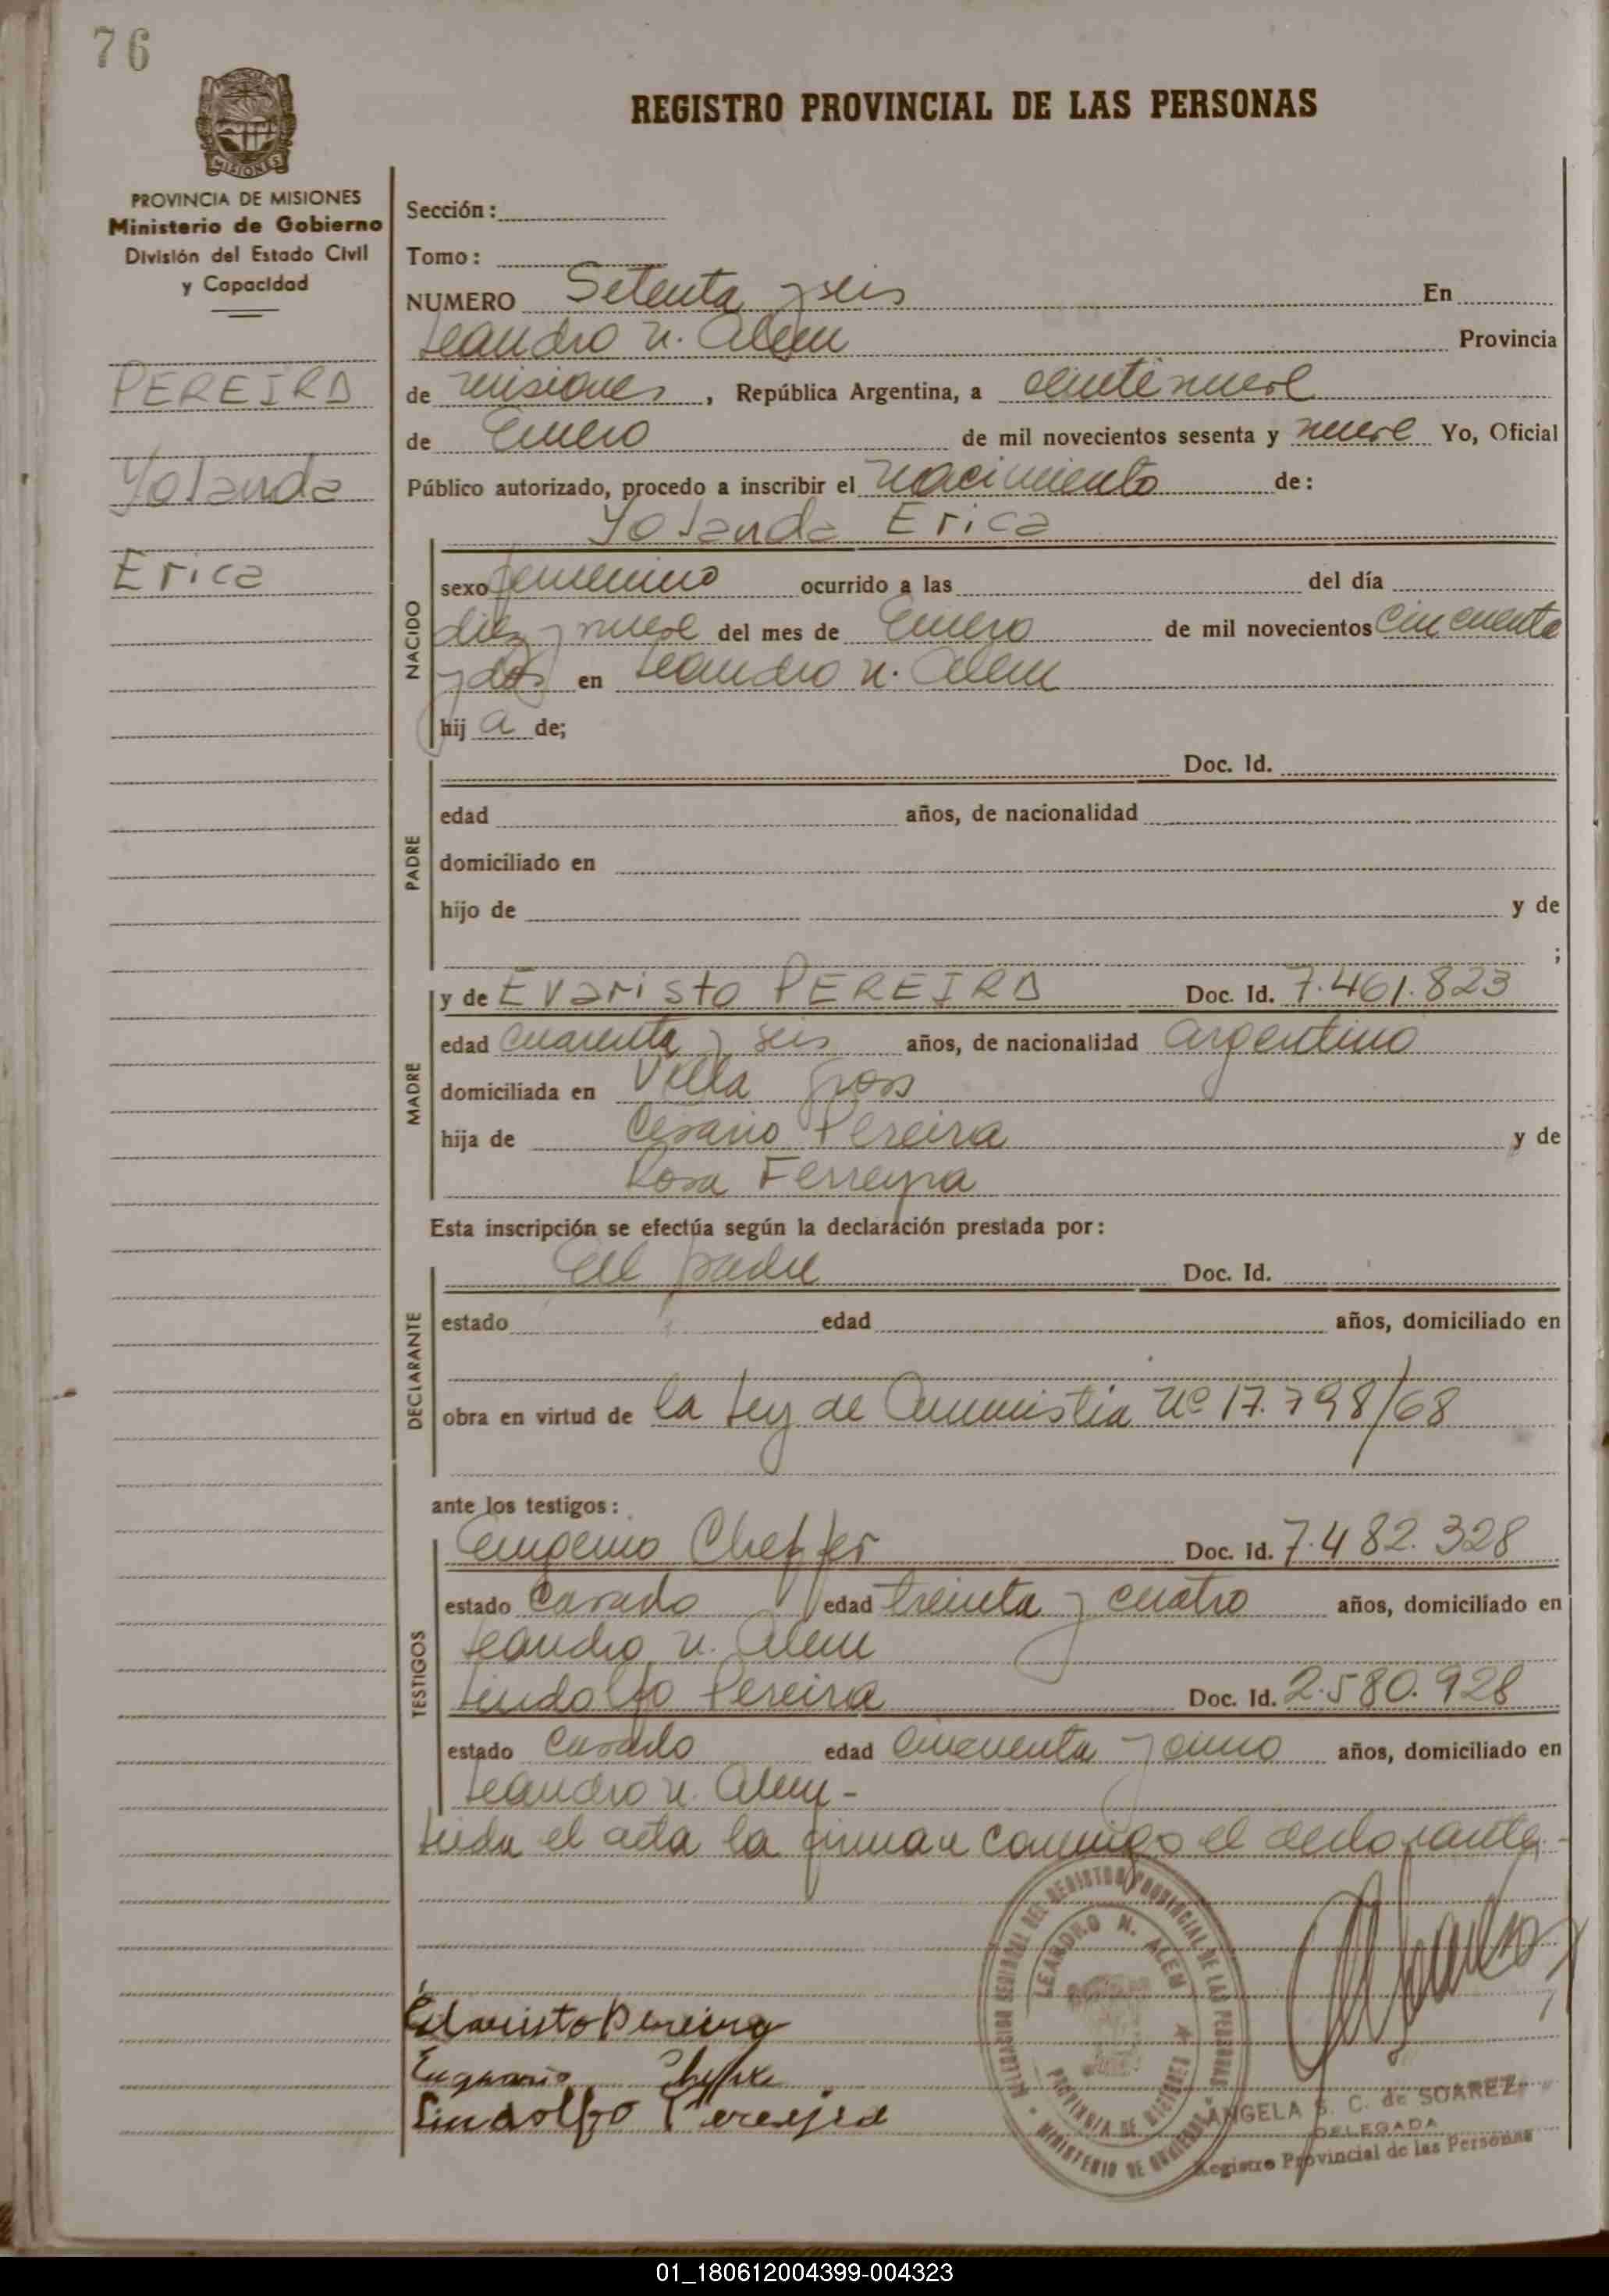 76
REGISTRO PROVINCIAL DE LAS PERSONAS
MISIONES
PROVINCIA DE MISIONES
Ministerio de Gobierno
División del Estado Civil
y Capacidad
PEREIRA
Yolanda
Erica
Sección:
Tomo:
NUMERO Setenta y seis En
Leandro N. Alem Provincia
de Misiones, República Argentina, a veintinueve
de Enero de mil novecientos sesenta y nueve Yo, Oficial
Público autorizado, procedo a inscribir el nacimiento de:
Yolanda Erica
NACIDO
sexo femenino ocurrido a las del día
diez y nueve del mes de Enero de mil novecientos cincuenta
y dos en Leandro N. Alem
hij a de;
PADRE
Doc. Id.
edad años, de nacionalidad
domiciliado en
hijo de y de
;
MADRE
y de Evaristo PEREIRA Doc. Id. 7.461.823
edad cuarenta y seis años, de nacionalidad argentino
domiciliada en Villa
hija de Cesario Pereira y de
Rosa Ferreyra
Esta inscripción se efectúa según la declaración prestada por:
DECLARANTE
El padre Doc. Id.
estado edad años, domiciliado en
obra en virtud de la Ley de Amnistia Nº 17.798/68
ante los testigos:
TESTIGOS
Eugenio Cheffer Doc. Id. 7.482.328
estado Casado edad treinta y cuatro años, domiciliado en
Leandro N. Alem
Lindolfo Pereira Doc. Id. 2.580.928
estado Casado edad cincuenta y cinco años, domiciliado en
Leandro N. Alem -
Leida el acta la firman conmigo el declarante -
DELEGACION SECCIONAL DEL REGISTRO PROVINCIAL DE LAS PERSONAS
LEANDRO N. ALEM
PROVINCIA DE MISIONES
MINISTERIO DE GOBIERNO
Evaristo Pereira
Lindolfo Pereira
ANGELA S. C. de SOAREZ
DELEGADA
Registro Provincial de las Personas
01_180612004399-004323